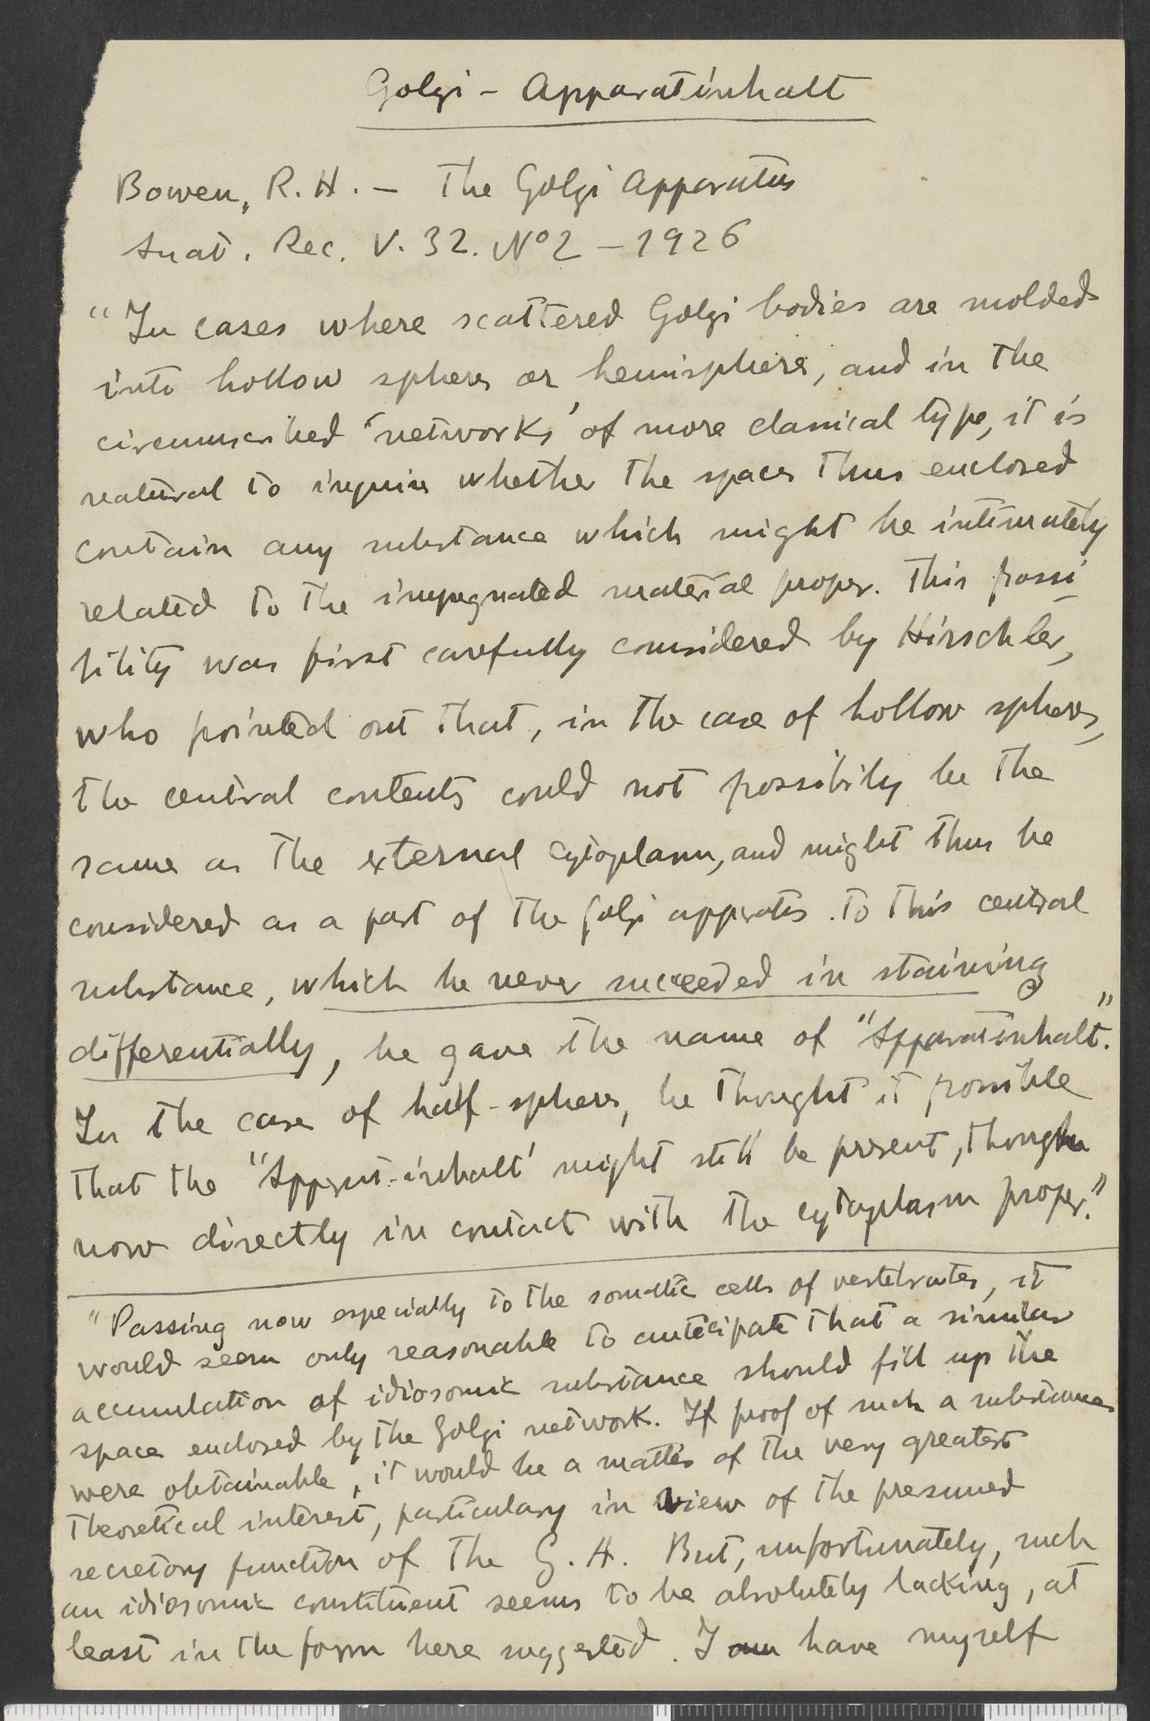 Golgi - Apparatinhalt
Bowen, R. H. - The Golgi Apparatus
Anat. Rec. V. 32. Nº2 - 1926
"In cases where scattered Golgi bodies are molded
into hollow spheres or hemispheres, and in the
circumscribed 'networks' of more classical type, it is
natural to inquire whether the spaces thus enclosed
contain any substance which might be intimately
related to the impregnated material proper. This possi-
bility was first carefully considered by Hirschler,
who pointed out that, in the case of hollow spheres,
the central contents could not possibily be the
same as the external cytoplasm, and might thus be
considered as a part of the Golgi apparatus. To this central
substance, which he never succeeded in staining
differentially, he gave the name of "Apparatinhalt."
In the case of half-spheres, he thought it possible
that the "Apparat-inhalt' might still be present, though
now directly in contact with the cytoplasm proper."
"Passing now especially to the somatic cells of vertebrates, it
would seem only reasonable to anticipate that a similar
accumulation of idiosomic substance should fill up the
space enclosed by the Golgi network. If proof of such a substance
were obtainable, it would be a matter of the very greatest
theoretical interest, particulary in view of the presumed
secretory function of the G. A. But, unfortunately, such
an idiosomic constituent seems to be absolutely lacking, at
least in the form here suggested. I have myself